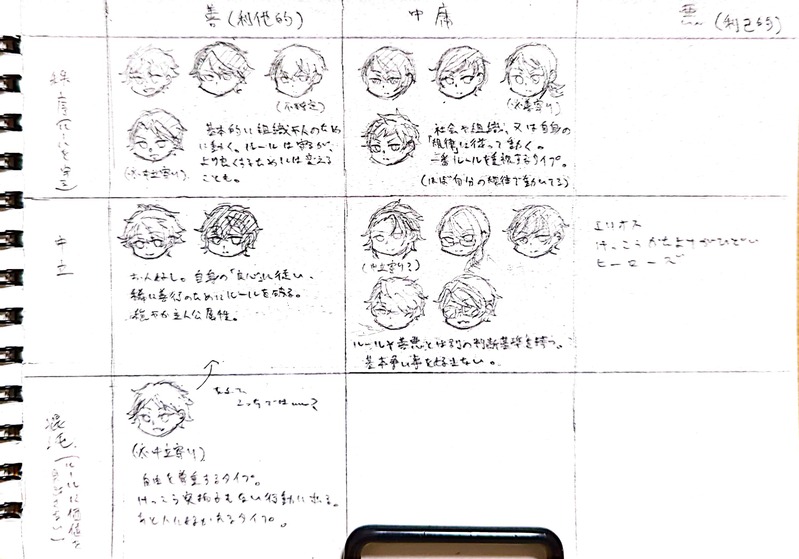 善(利他的)
中庸
悪(利己的)
秩序(ルールを守る)
(不安定)
(※中立寄り)
基本的に組織や人のため
に動く。ルールは守るが、
より良くするためには変える
ことも。
(※善寄り)
社会や組織、又は自身の
「規律」に従って動く。
一番ルールを重視するタイプ。
(ほぼ自分の規律で動いてる)
中立
お人好し。自身の「良心」に従い、
稀に善行のためにルールを破る。
穏やか主人公属性。
(中立寄り?)
ルールや善悪とは別の判断基準を持つ。
基本争い事を好まない。
エリオス
けっこうかたよりがひどい
ヒーローズ
混沌
こっちでは
(※中立寄り)
自由を尊重するタイプ。
けっこう突拍子もない行動に出る。
あと人に好かれるタイプ。